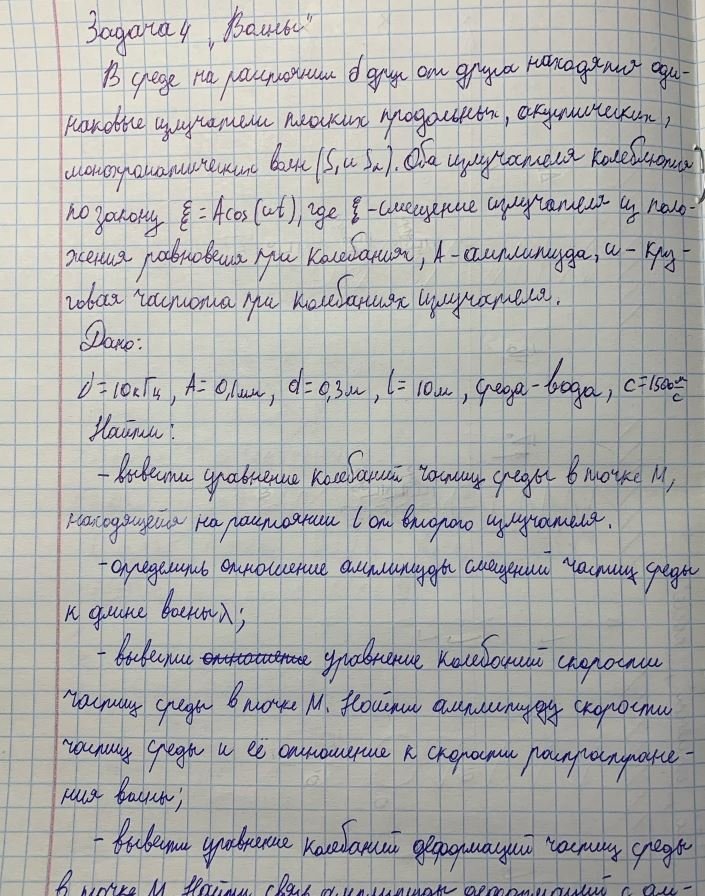 Задача 4 „Волны"
В среде на расстоянии d друг от друга находятся оди-
наковые излучатели плоских продольных, акустических,
монохроматических волн (S₁ и S₂). Оба излучателя колеблются
по закону ξ = Acos(ωt), где ξ - смещение излучателя из поло-
жения равновесия при колебаниях, A - амплитуда, ω - кру-
говая частота при колебаниях излучателя.
Дано:
ν = 10кГц, A = 0,1мм, d = 0,3м, l = 10м, среда - вода, c = 1500 м/с
Найти:
- вывести уравнение колебаний частиц среды в точке M,
находящейся на расстоянии l от второго излучателя.
- определить отношение амплитуды смещений частиц среды
к длине волны λ;
- вывести отношение уравнение колебаний скорости
частиц среды в точке M. Найти амплитуду скорости
частиц среды и её отношение к скорости распростране-
ния волны;
- вывести уравнение колебаний деформаций частиц среды
в точке M. Найти связь амплитуды деформаций с ам-